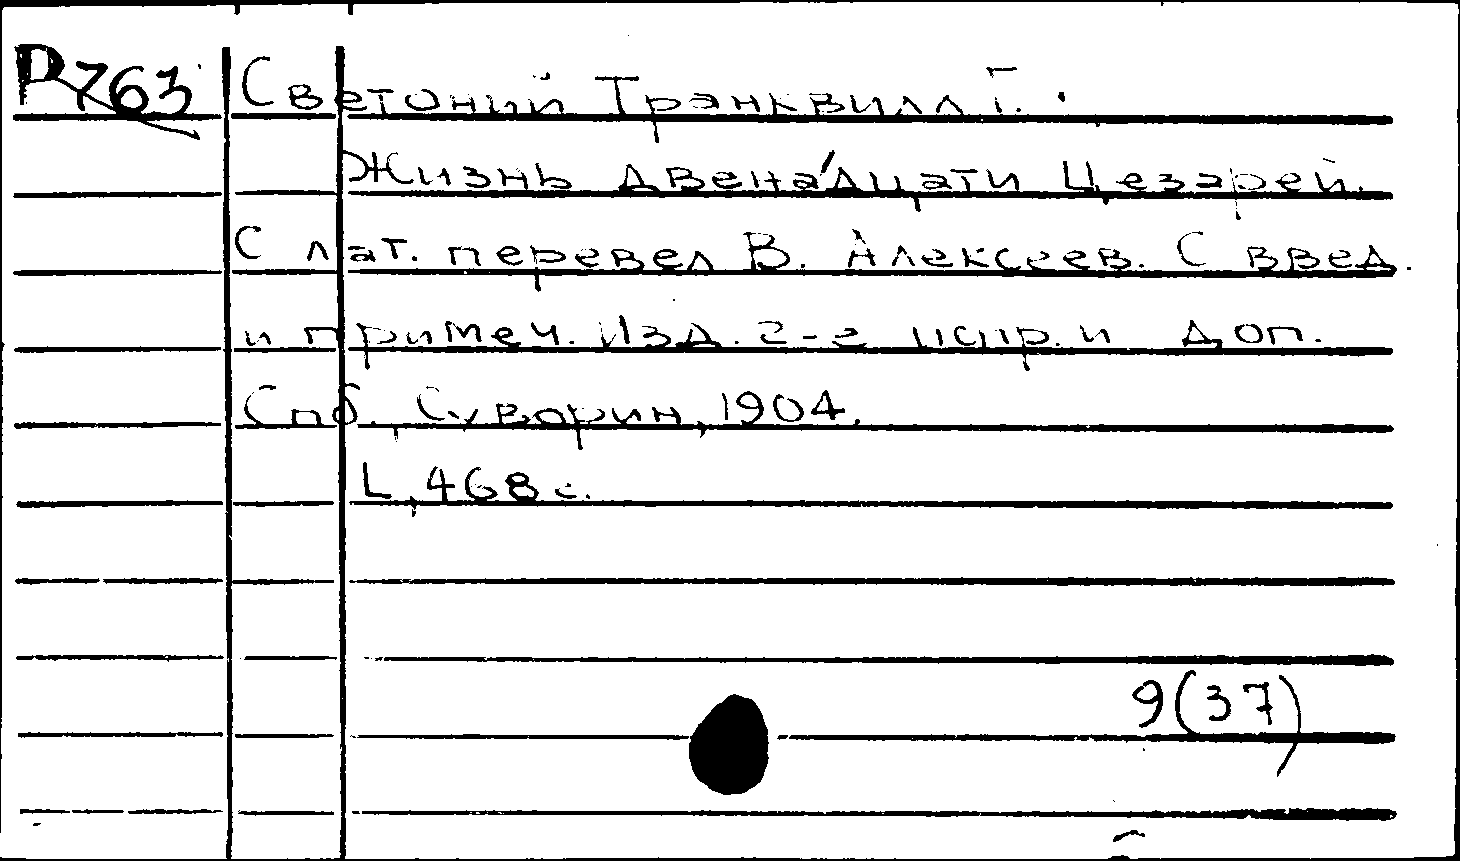 Р763 Светоний Транквилл Г.
Жизнь двенадцати Цезарей.
С лат. перевел В. Алексеев. С введ.
и примеч. Изд. 2-е испр. и доп.
Спб., Суворин, 1904.
L, 468 с.
9(37)